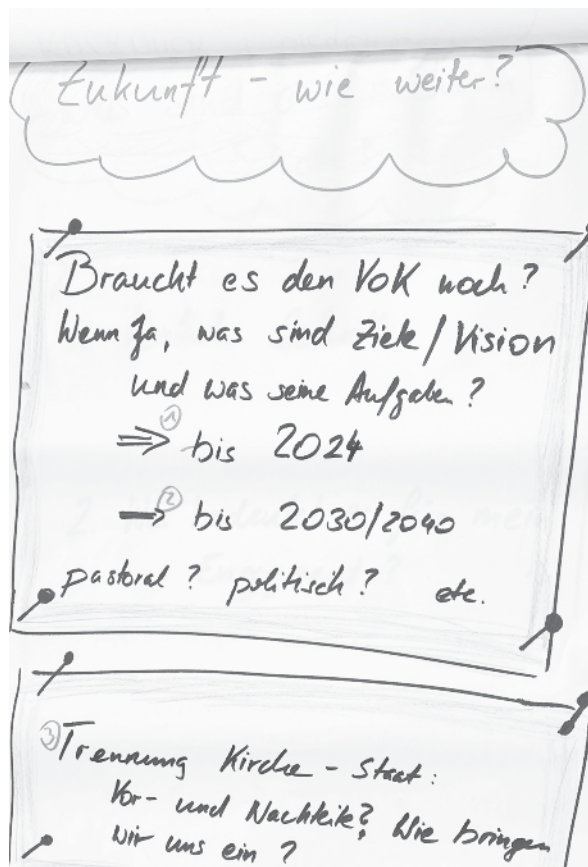 Zukunft - wie weiter?
Braucht es den VoK noch?
Wenn Ja, was sind Ziele/Vision
und was seine Aufgaben?
① ⇒ bis 2024
② → bis 2030/2040
pastoral? politisch? etc.
③ Trennung Kirche - Staat:
Vor- und Nachteile? Wie bringen
wir uns ein?